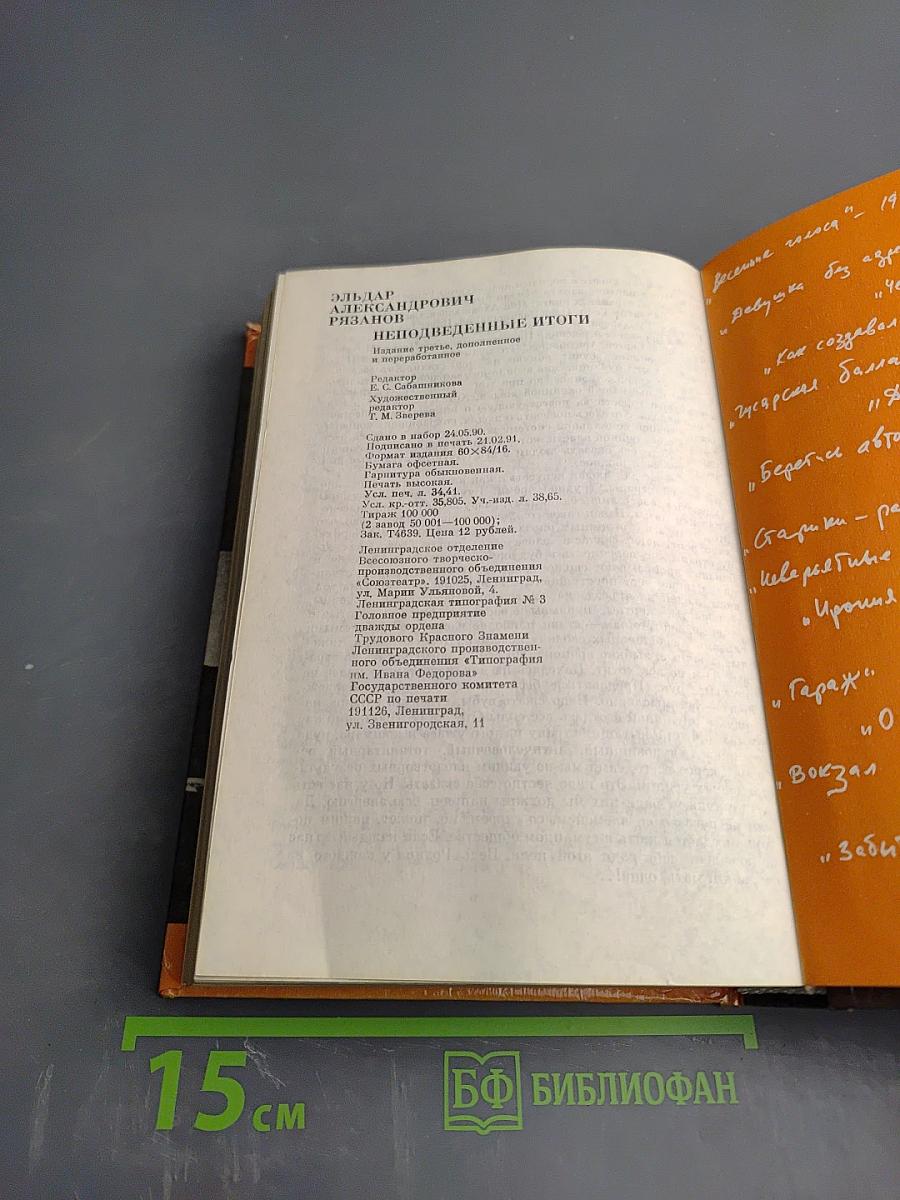 ЭЛЬДАР
АЛЕКСАНДРОВИЧ
РЯЗАНОВ
НЕПОДВЕДЕННЫЕ ИТОГИ
Издание третье, дополненное
и переработанное
Редактор
Е. С. Сабашникова
Художественный
редактор
Т. М. Зверева
Сдано в набор 24.05.90.
Подписано в печать 21.02.91.
Формат издания 60×84/16.
Бумага офсетная.
Гарнитура обыкновенная.
Печать высокая.
Усл. печ. л. 34,41.
Усл. кр.-отт. 35,805. Уч.-изд. л. 38,65.
Тираж 100 000
(2 завод 50 001—100 000);
Зак. Т4639. Цена 12 рублей.
Ленинградское отделение
Всесоюзного творческо-
производственного объединения
«Союзтеатр». 191025, Ленинград,
ул. Марии Ульяновой, 4.
Ленинградская типография № 3
Головное предприятие
дважды ордена
Трудового Красного Знамени
Ленинградского производствен-
ного объединения «Типография
им. Ивана Федорова»
Государственного комитета
СССР по печати
191126, Ленинград,
ул. Звенигородская, 11
„Весенние голоса" – 19
„Девушка без адре
„Че
„Как создавал
гусарская балла
„Д
„Берегись авто
„Старики – ра
„Невероятные
„Ирония
„Гараж"
„О
„Вокзал
„Забы
15 см
БФ БИБЛИОФАН